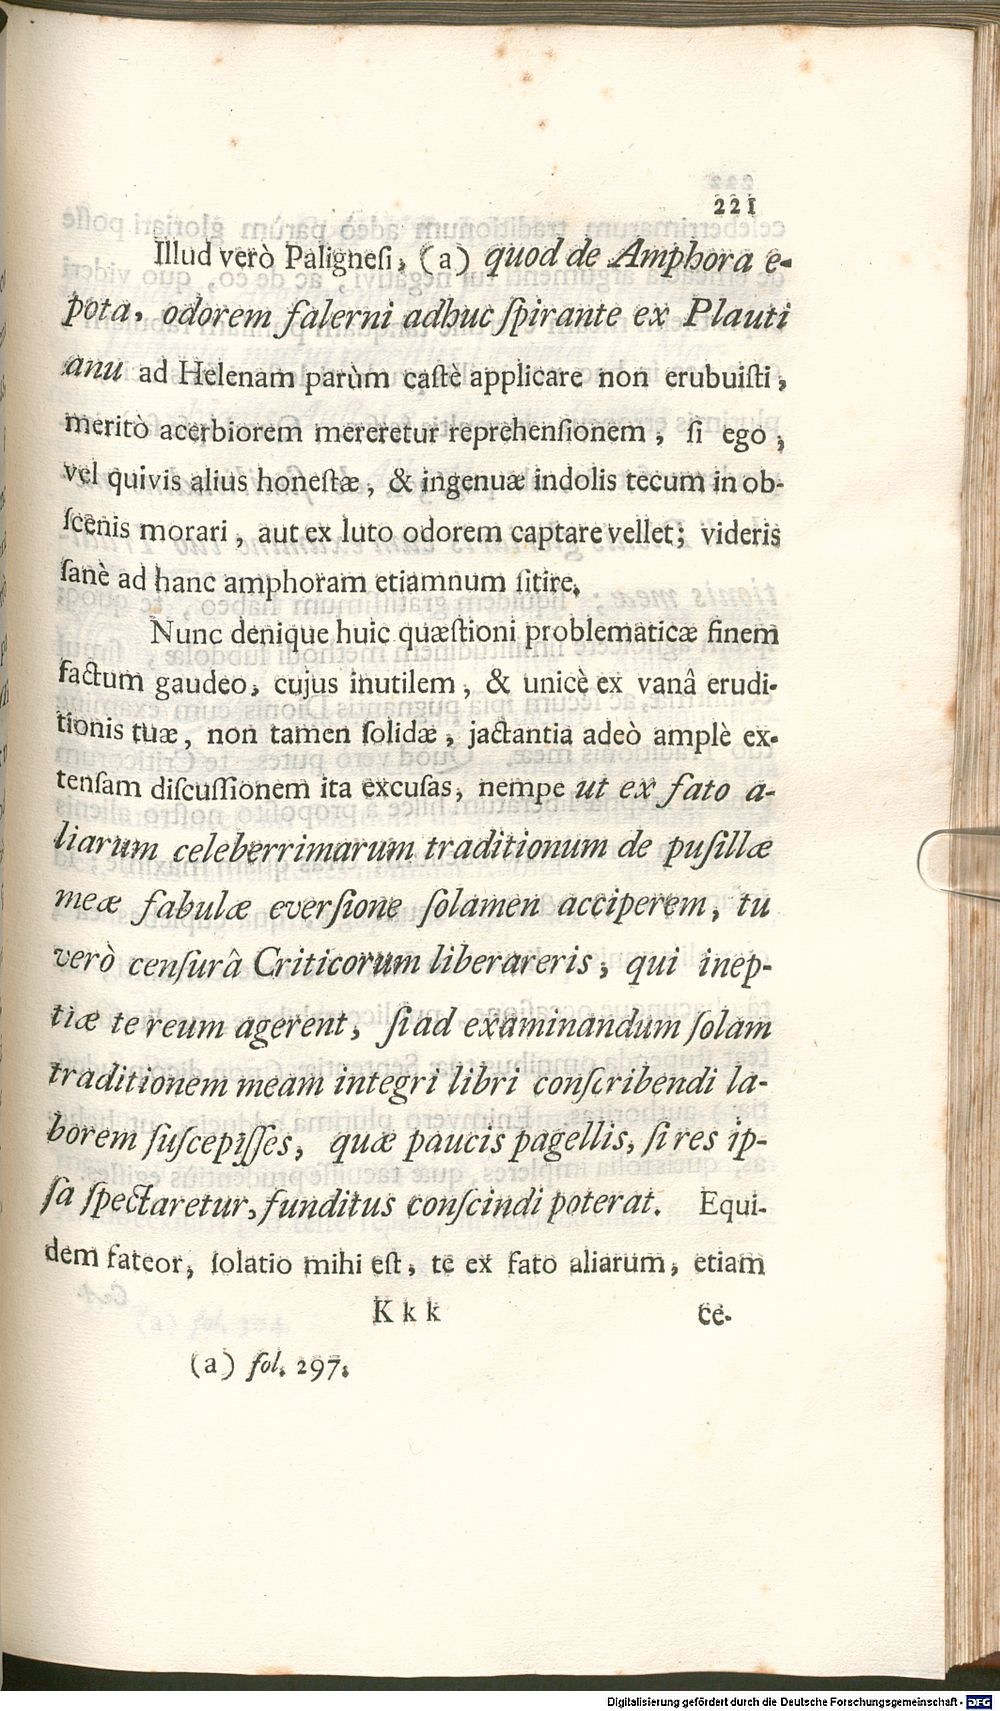 221
Illud verò Palignesi, (a) quod de Amphora e-
pota, odorem falerni adhuc ſpirante ex Plauti
anu ad Helenam parùm caſtè applicare non erubuiſti,
meritò acerbiorem mereretur reprehenſionem, ſi ego,
vel quivis alius honeſtæ, & ingenuæ indolis tecum in ob-
ſcenis morari, aut ex luto odorem captare vellet; videris
ſanè ad hanc amphoram etiamnum ſitire.
Nunc denique huic quæſtioni problematicæ finem
factum gaudeo, cujus inutilem, & unicè ex vanâ erudi-
tionis tuæ, non tamen ſolidæ, jactantia adeò amplè ex-
tenſam diſcuſſionem ita excuſas, nempe ut ex fato a-
liarum celeberrimarum traditionum de puſillæ
meæ fabulæ everſione ſolamen acciperem, tu
verò cenſurâ Criticorum liberareris, qui inep-
tiæ te reum agerent, ſi ad examinandum ſolam
traditionem meam integri libri conſcribendi la-
borem ſuſcepiſſes, quæ paucis pagellis, ſi res ip-
ſa ſpectaretur, funditus conſcindi poterat. Equi-
dem fateor, ſolatio mihi eſt, te ex fato aliarum, etiam
K k k ce-
(a) fol. 297.
Digitalisierung gefördert durch die Deutsche Forschungsgemeinschaft - DFG